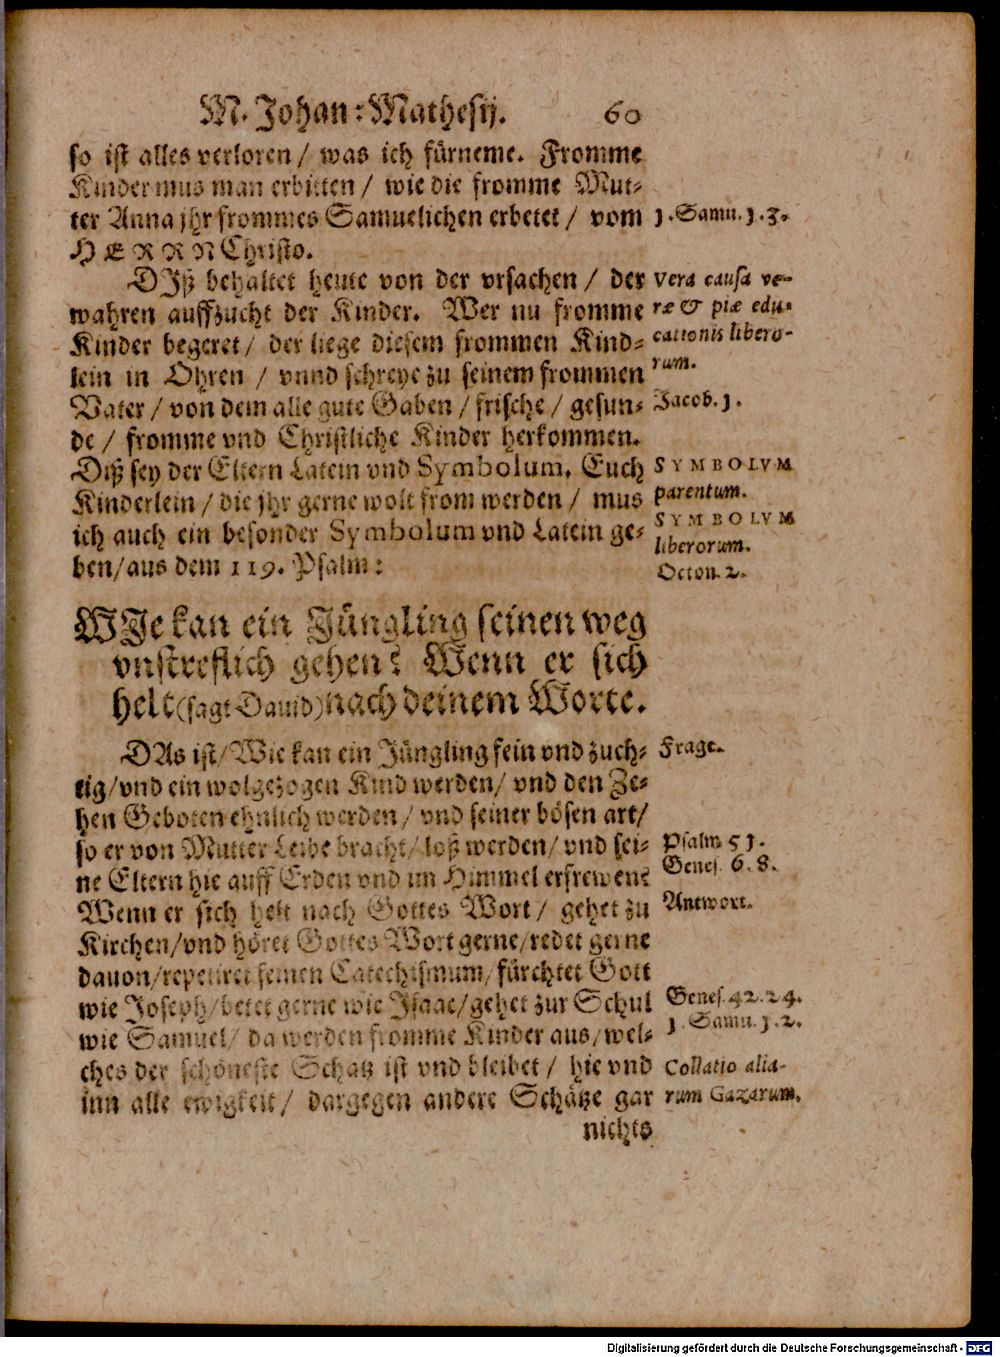 M. Johan: Mathesij. 60
so ist alles verloren / was ich fürneme. Fromme
Kinder mus man erbitten / wie die fromme Mut-
ter Anna jhr frommes Samuelichen erbetet / vom
HERRN Christo.
1. Samu. 1. 3.
DIß behaltet heute von der vrsachen / der
wahren auffzucht der Kinder. Wer nu fromme
Kinder begeret / der liege diesem frommen Kind-
lein in Ohren / vnnd schreye zu seinem frommen
Vater / von dem alle gute Gaben / frische / gesun-
de / fromme vnd Christliche Kinder herkommen.
Diß sey der Eltern Latein vnd Symbolum. Euch
Kinderlein / die jhr gerne wolt from werden / mus
ich auch ein besonder Symbolum vnd Latein ge-
ben / aus dem 119. Psalm:
Vera causa ve-
ræ & piæ edu-
cationis libero-
rum.
Jacob. 1.
SYMBOLVM
parentum.
SYMBOLVM
liberorum.
Octon. 2.
WJe kan ein Jüngling seinen weg
vnstreflich gehen? Wenn er sich
helt (sagt Dauid) nach deinem Worte.
DAs ist / Wie kan ein Jüngling fein vnd züch-
tig / vnd ein wolgezogen Kind werden / vnd den Ze-
hen Geboten ehnlich werden / vnd seiner bösen art /
so er von Mutter Leibe bracht / loß werden / vnd sei-
ne Eltern hie auff Erden vnd im Himmel erfrewen?
Wenn er sich helt nach Gottes Wort / gehet zu
Kirchen / vnd höret Gottes Wort gerne / redet gerne
dauon / repetiret seinen Catechismum / fürchtet Gott
wie Joseph / betet gerne wie Jsaac / gehet zur Schul
wie Samuel / da werden fromme Kinder aus / wel-
ches der schöneste Schatz ist vnd bleibet / hie vnd
inn alle ewigkeit / dargegen andere Schätze gar
nichts
Frage.
Psalm. 51.
Genes. 6. 8.
Antwort.
Genes. 42. 24.
1. Samu. 1. 2.
Collatio alia-
rum Gazarum.
Digitalisierung gefördert durch die Deutsche Forschungsgemeinschaft - DFG